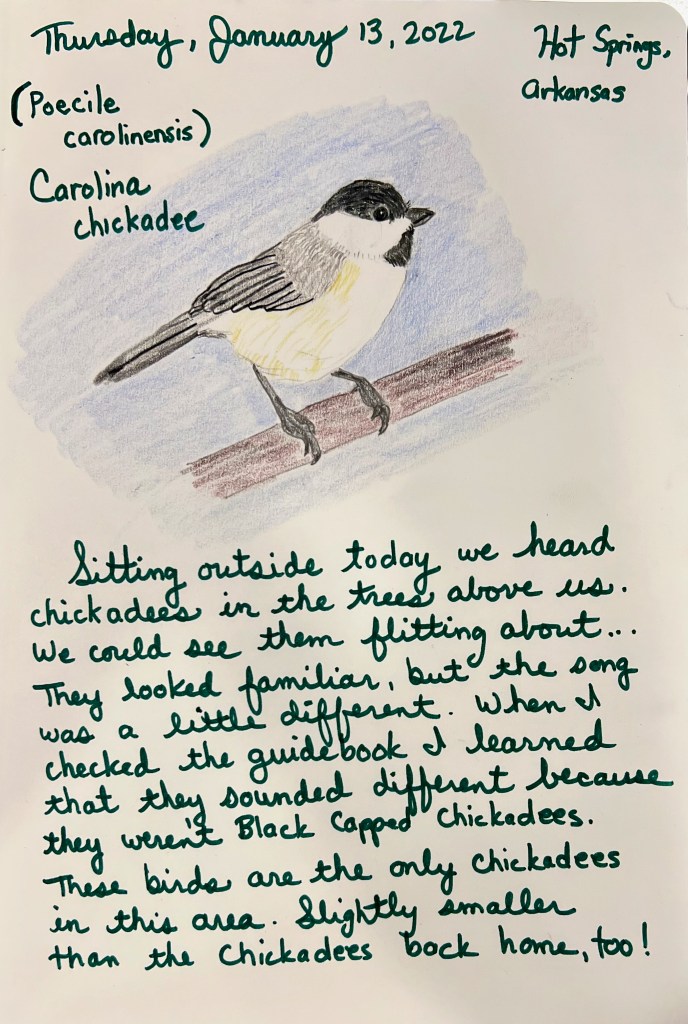 Thursday, January 13, 2022
Hot Springs,
Arkansas
(Poecile
carolinensis)
Carolina
chickadee
Sitting outside today we heard
chickadees in the trees above us.
We could see them flitting about...
They looked familiar, but the song
was a little different. When I
checked the guidebook I learned
that they sounded different because
they weren't Black Capped Chickadees.
These birds are the only chickadees
in this area. Slightly smaller
than the Chickadees back home, too!